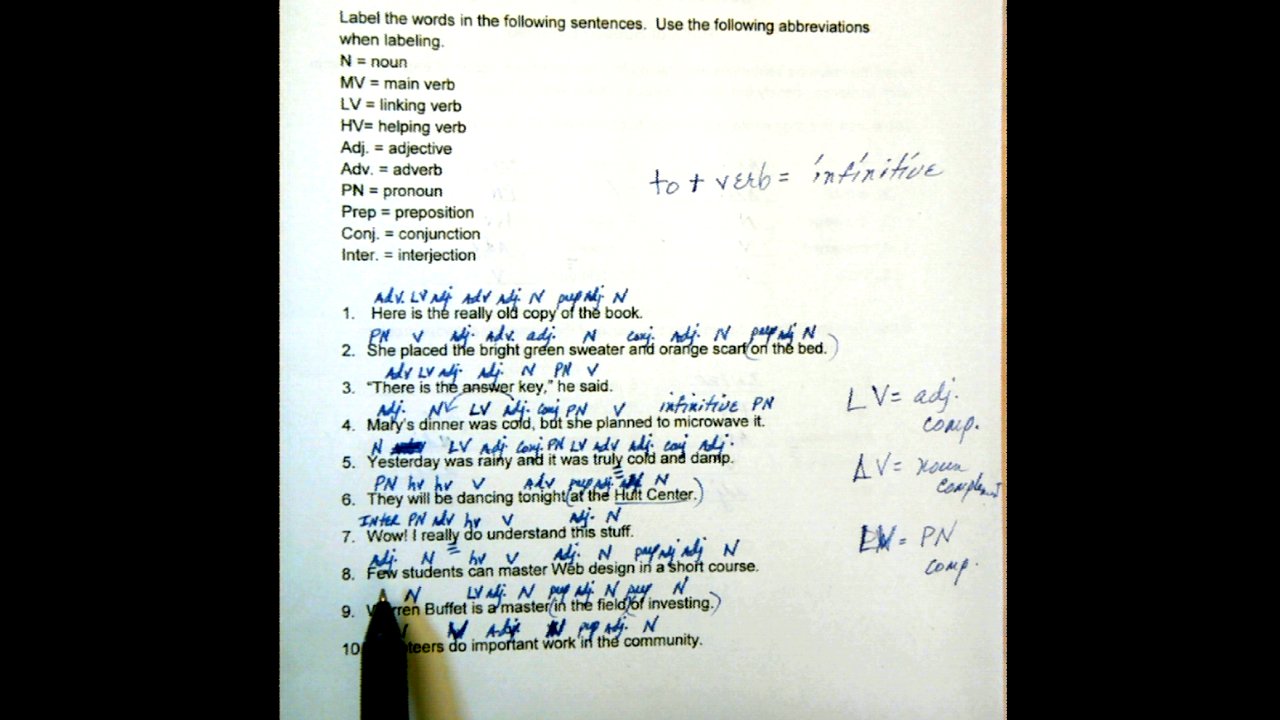 Label the words in the following sentences. Use the following abbreviations
when labeling.
N = noun
MV = main verb
LV = linking verb
HV= helping verb
Adj. = adjective
Adv. = adverb
PN = pronoun
Prep = preposition
Conj. = conjunction
Inter. = interjection
to + verb = infinitive
Adv. LV adj Adv Adj. N prep adj. N
1. Here is the really old copy of the book.
PN V adj. adv. adj. N conj. adj. N prep adj N
2. She placed the bright green sweater and orange scarf (on the bed.)
Adv LV adj. adj. N PN V
3. "There is the answer key," he said.
Adj. N LV adj. conj PN V infinitive PN
4. Mary's dinner was cold, but she planned to microwave it.
N LV Adj. conj. PN LV adv adj. conj adj.
5. Yesterday was rainy and it was truly cold and damp.
PN hv hv V Adv prep adj. N
6. They will be dancing tonight (at the Hult Center.)
INTER PN adv hv V adj. N
7. Wow! I really do understand this stuff.
Adj. N hv V Adj. N prep adj adj N
8. Few students can master Web design in a short course.
N LV adj. N prep adj. N prep N
9. Buffet is a master (in the field) (of investing.)
V Adj. prep adj. N
10 do important work in the community.
LV= adj.
comp.
LV= noun
LV= PN
comp.